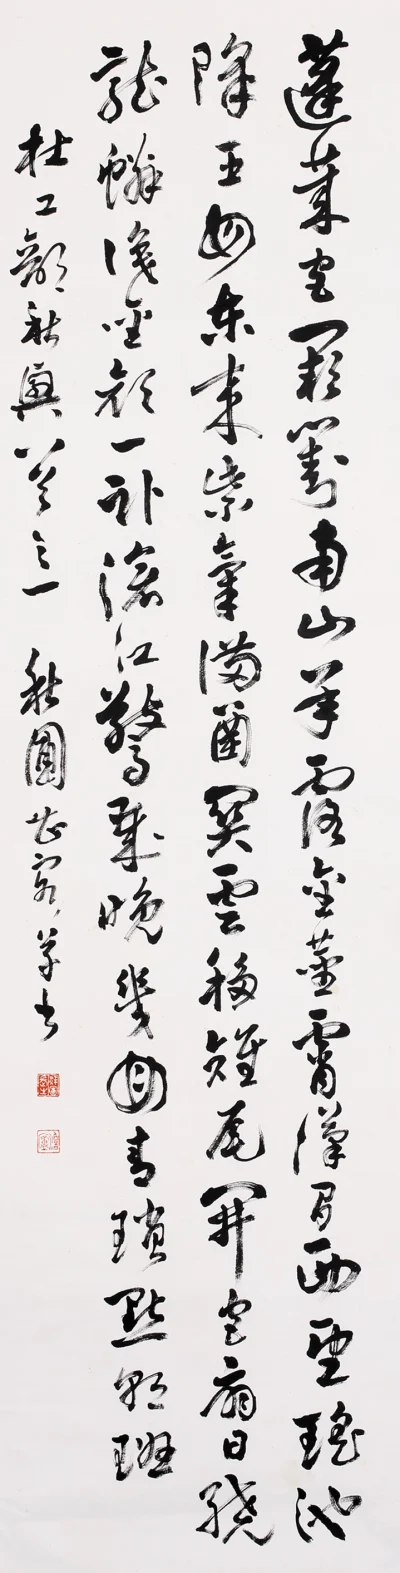 蓬萊宮闕對南山承露金莖霄漢間西望瑤池
降王母東來紫氣滿函關雲移雉尾開宮扇日繞
龍鱗識聖顏一臥滄江驚歲晚幾回青瑣點朝班
杜工部秋興八首之一 秋 草書